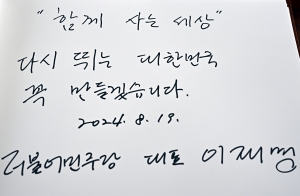 "함께 사는 세상"
다시 뛰는 대한민국
꼭 만들겠습니다.
2024. 8. 19.
더불어민주당 대표 이재명